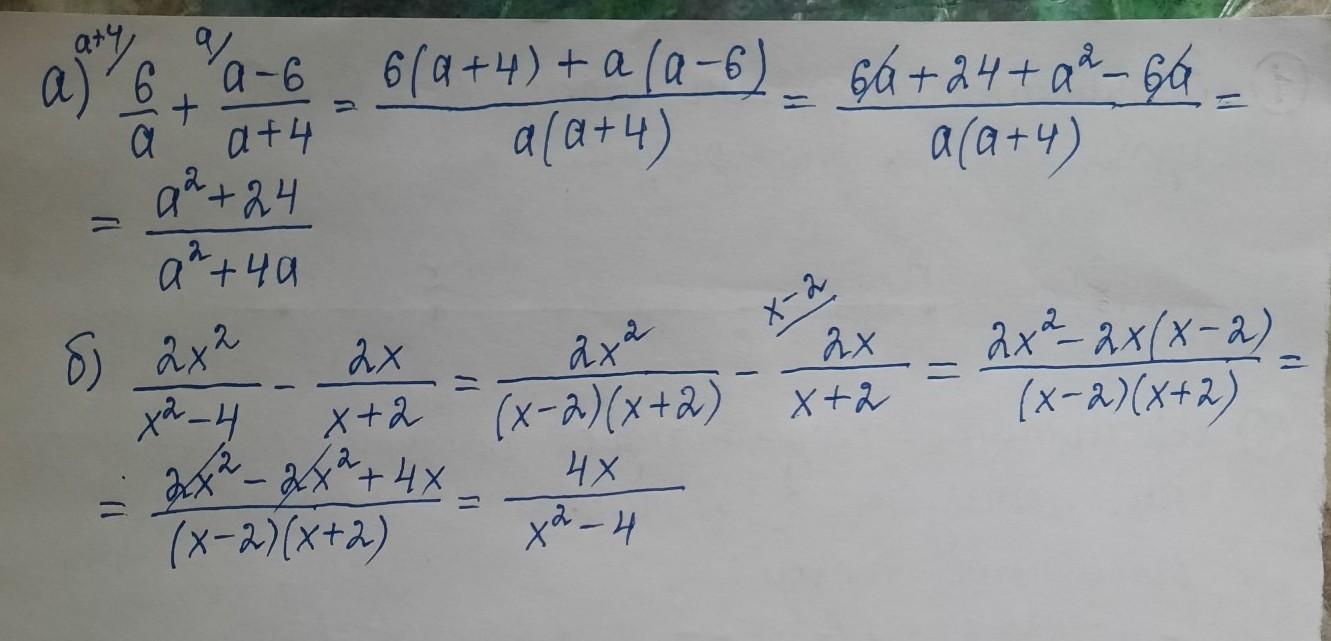 а) a+4/ 6/a + a/ (a-6)/(a+4) = (6(a+4) + a(a-6))/(a(a+4)) = (6a + 24 + a² - 6a)/(a(a+4)) =
= (a² + 24)/(a² + 4a)
б) 2x²/(x²-4) - 2x/(x+2) = 2x²/((x-2)(x+2)) - x-2/ 2x/(x+2) = (2x² - 2x(x-2))/((x-2)(x+2)) =
= (2x² - 2x² + 4x)/((x-2)(x+2)) = 4x/(x²-4)